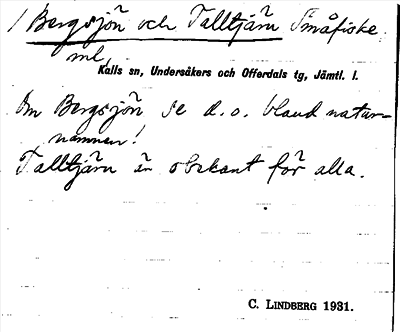 / Bergsjön och Talltjärn Småfiske.
ml,
Kalls sn, Undersåkers och Offerdals tg, Jämtl. l.
Om Bergsjön se d.o. bland natur-
namnen!
Talltjärn är obekant för alla.
C. LINDBERG 1931.